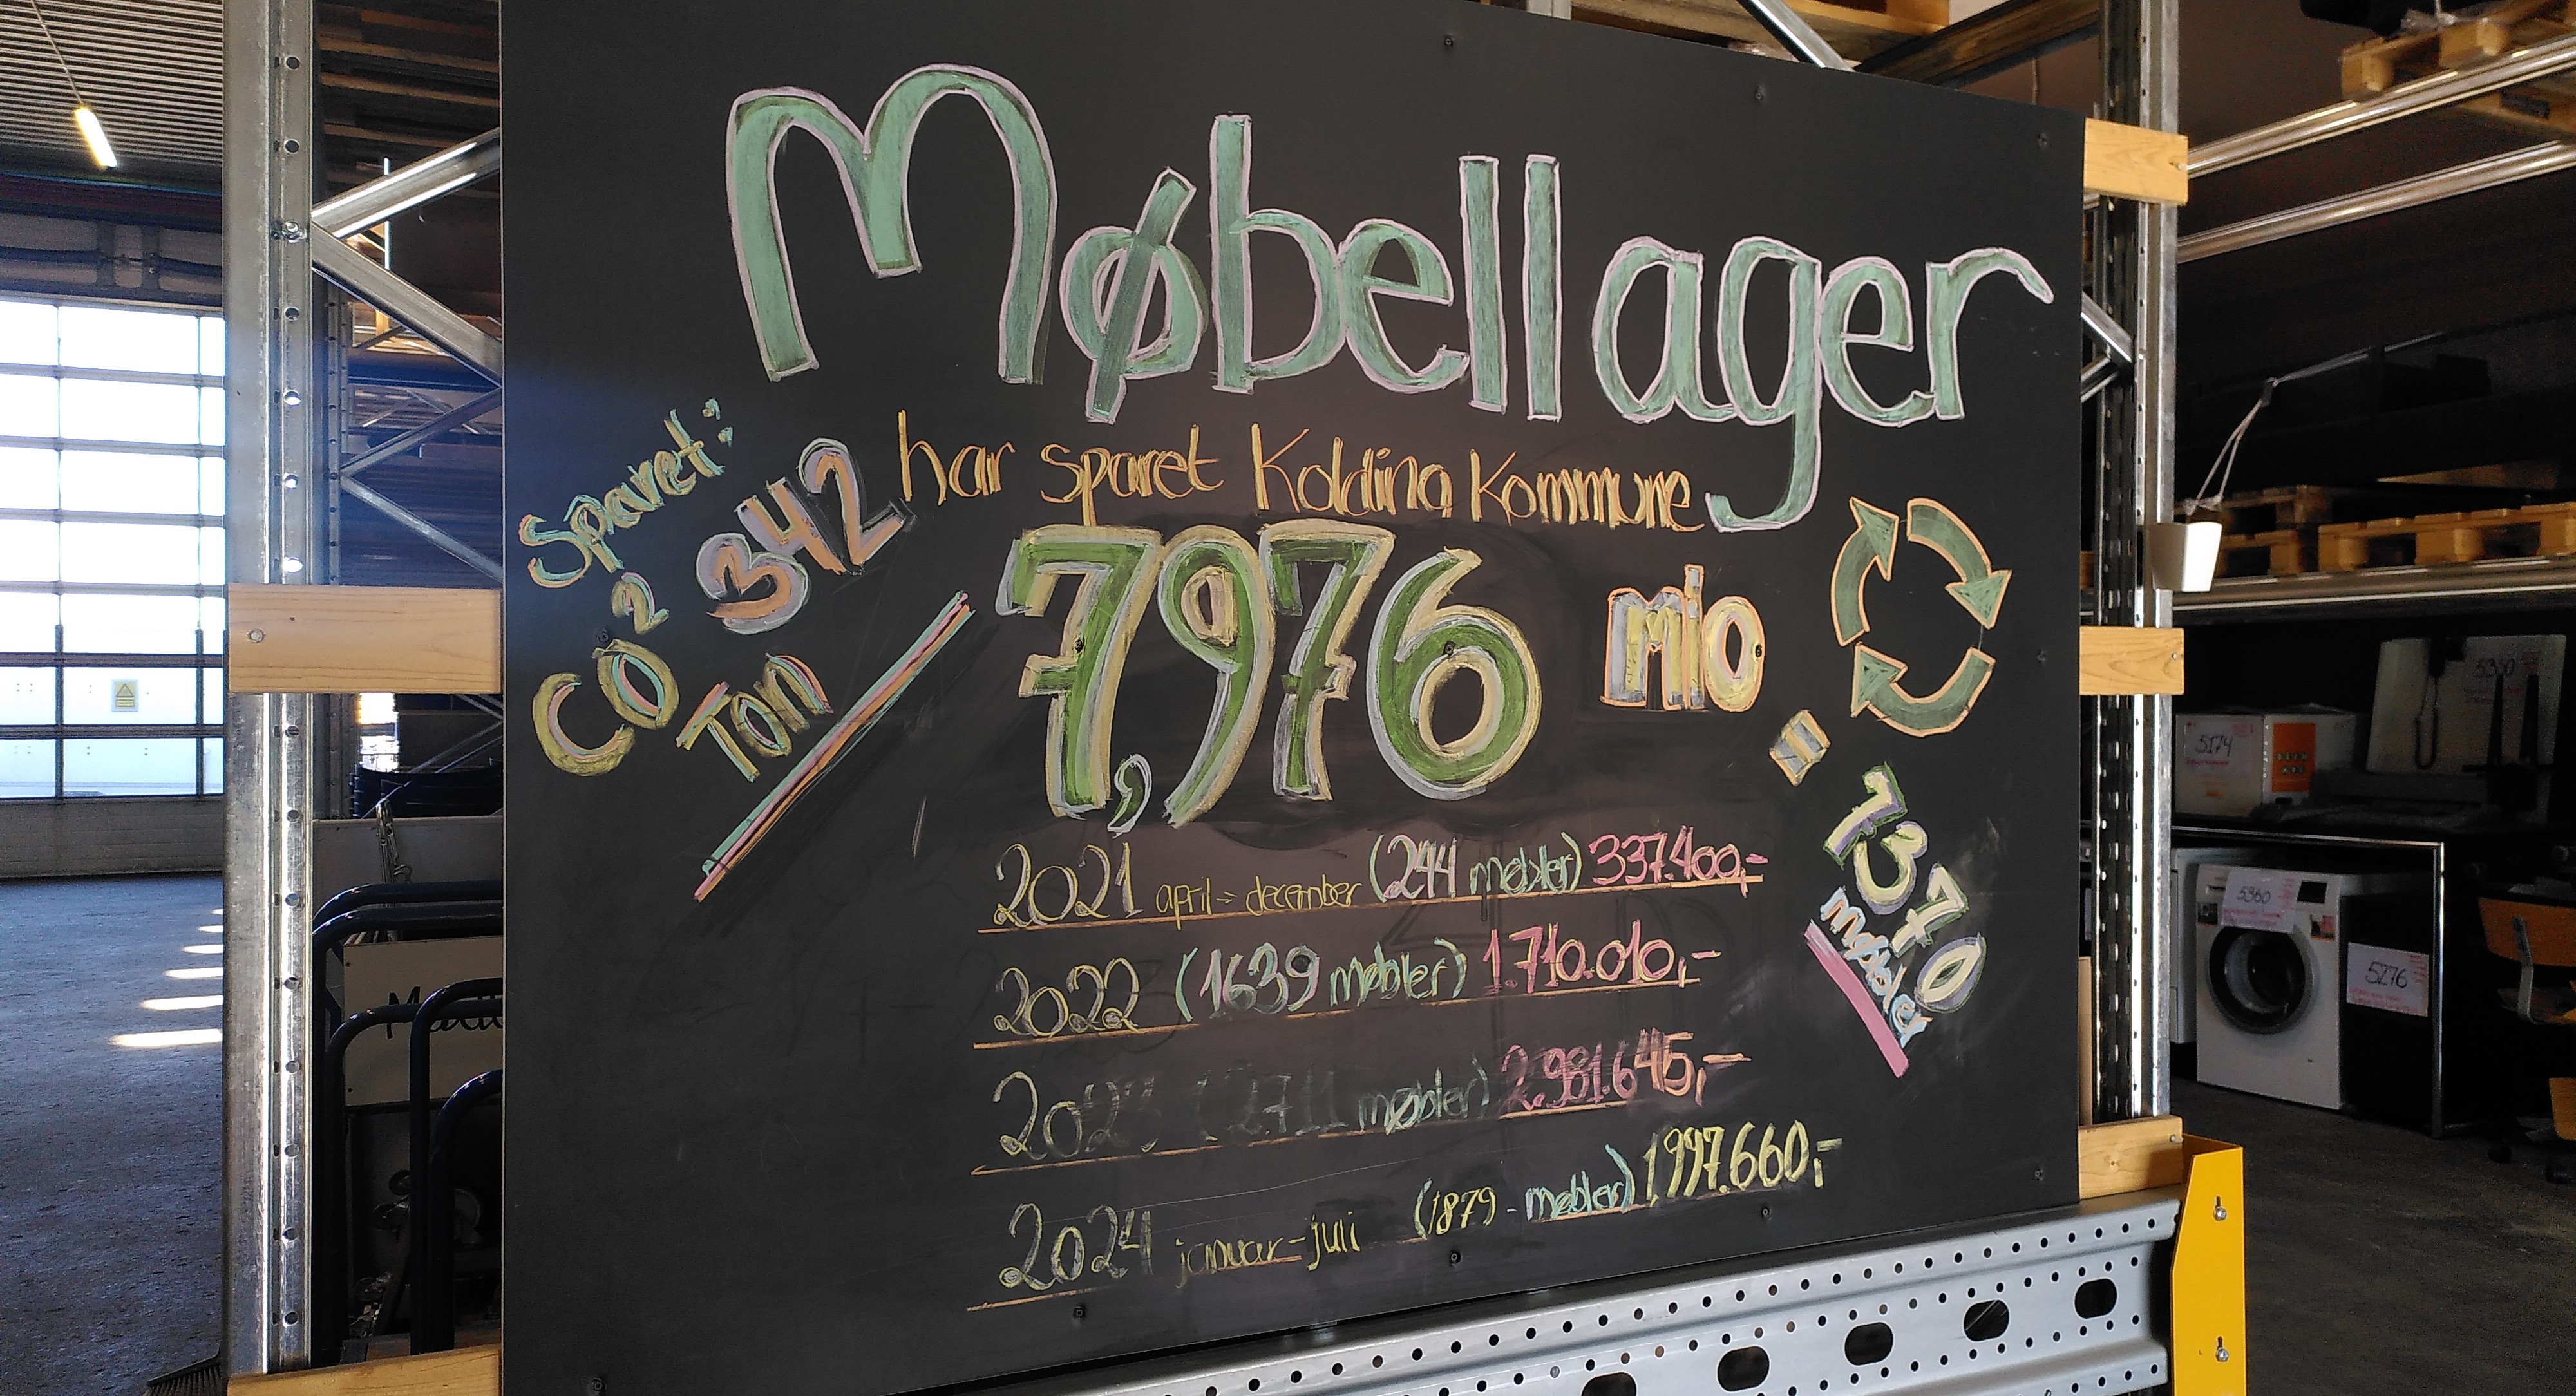 Møbellager
har sparet Kolding Kommune
Sparet:
CO2 342
Ton
7,976 mio
= 7370
møbler
2021 april - december (244 møbler) 337.400,-
2022 (1639 møbler) 1.710.010,-
2023 (2711 møbler) 2.981.645,-
2024 januar - juli (1879 - møbler) 1.997.660,-
5174
5360
5276